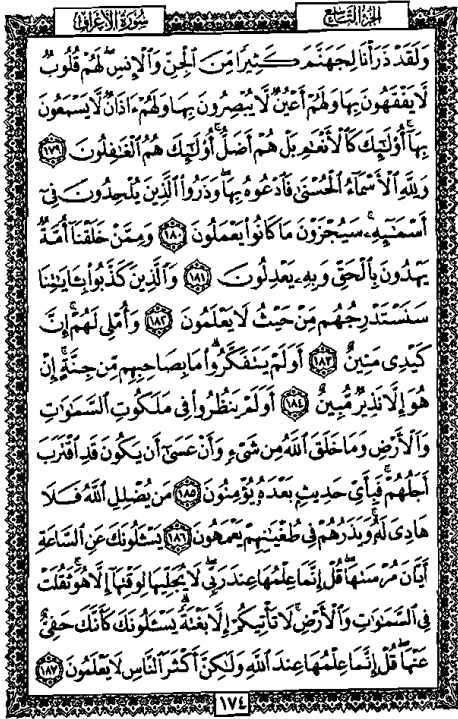 سُورَةُ الأَعْرَافِ الجُزْءُ التَّاسِعُ
وَلَقَدْ ذَرَأْنَا لِجَهَنَّمَ كَثِيرًا مِّنَ ٱلْجِنِّ وَٱلْإِنسِ لَهُمْ قُلُوبٌ
لَّا يَفْقَهُونَ بِهَا وَلَهُمْ أَعْيُنٌ لَّا يُبْصِرُونَ بِهَا وَلَهُمْ ءَاذَانٌ لَّا يَسْمَعُونَ
بِهَآ أُو۟لَـٰٓئِكَ كَٱلْأَنْعَـٰمِ بَلْ هُمْ أَضَلُّ أُو۟لَـٰٓئِكَ هُمُ ٱلْغَـٰفِلُونَ ١٧٩
وَلِلَّهِ ٱلْأَسْمَآءُ ٱلْحُسْنَىٰ فَٱدْعُوهُ بِهَا وَذَرُوا۟ ٱلَّذِينَ يُلْحِدُونَ فِىٓ
أَسْمَـٰٓئِهِۦ سَيُجْزَوْنَ مَا كَانُوا۟ يَعْمَلُونَ ١٨٠ وَمِمَّنْ خَلَقْنَآ أُمَّةٌ
يَهْدُونَ بِٱلْحَقِّ وَبِهِۦ يَعْدِلُونَ ١٨١ وَٱلَّذِينَ كَذَّبُوا۟ بِـَٔايَـٰتِنَا
سَنَسْتَدْرِجُهُم مِّنْ حَيْثُ لَا يَعْلَمُونَ ١٨٢ وَأُمْلِى لَهُمْ إِنَّ
كَيْدِى مَتِينٌ ١٨٣ أَوَلَمْ يَتَفَكَّرُوا۟ مَا بِصَاحِبِهِم مِّن جِنَّةٍ إِنْ
هُوَ إِلَّا نَذِيرٌ مُّبِينٌ ١٨٤ أَوَلَمْ يَنظُرُوا۟ فِى مَلَكُوتِ ٱلسَّمَـٰوَٰتِ
وَٱلْأَرْضِ وَمَا خَلَقَ ٱللَّهُ مِن شَىْءٍ وَأَنْ عَسَىٰٓ أَن يَكُونَ قَدِ ٱقْتَرَبَ
أَجَلُهُمْ فَبِأَىِّ حَدِيثٍۭ بَعْدَهُۥ يُؤْمِنُونَ ١٨٥ مَن يُضْلِلِ ٱللَّهُ فَلَا
هَادِىَ لَهُۥ وَيَذَرُهُمْ فِى طُغْيَـٰنِهِمْ يَعْمَهُونَ ١٨٦ يَسْـَٔلُونَكَ عَنِ ٱلسَّاعَةِ
أَيَّانَ مُرْسَىٰهَا قُلْ إِنَّمَا عِلْمُهَا عِندَ رَبِّى لَا يُجَلِّيهَا لِوَقْتِهَآ إِلَّا هُوَ ثَقُلَتْ
فِى ٱلسَّمَـٰوَٰتِ وَٱلْأَرْضِ لَا تَأْتِيكُمْ إِلَّا بَغْتَةً يَسْـَٔلُونَكَ كَأَنَّكَ حَفِىٌّ
عَنْهَا قُلْ إِنَّمَا عِلْمُهَا عِندَ ٱللَّهِ وَلَـٰكِنَّ أَكْثَرَ ٱلنَّاسِ لَا يَعْلَمُونَ ١٨٧
١٧٤